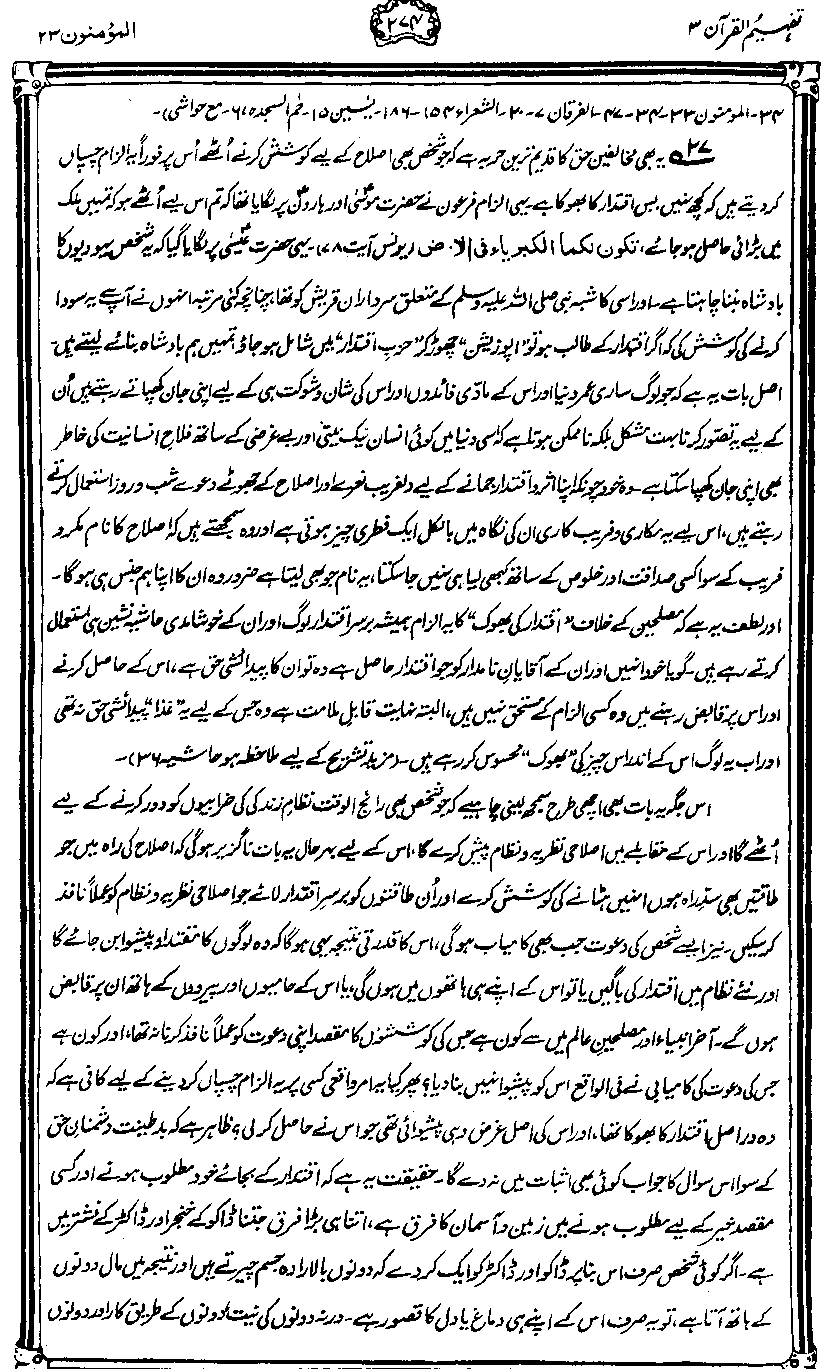 تفہیم القرآن ۳
۲۷۴
المؤمنون ۲۳
۳۴۔ المومنون ۳۳-۳۴-۴۷۔ الفرقان ۷-۲۰۔ الشعراء ۱۵۴-۱۸۶۔ یٰسین ۱۵۔ حٰم السجدہ ۶، مع حواشی)۔
۲۷ یہ بھی مخالفین حق کا قدیم ترین حربہ ہے کہ جو شخص بھی اصلاح کے لیے کوشش کرنے اُٹھے اُس پر فوراً یہ الزام چسپاں
کر دیتے ہیں کہ کچھ نہیں، بس اقتدار کا بھوکا ہے۔ یہی الزام فرعون نے حضرت موسیٰؑ اور ہارونؑ پر لگایا تھا کہ تم اس لیے اُٹھے ہو کہ تمہیں ملک
میں بڑائی حاصل ہو جائے، تکون لکما الکبریاء فی الارض (یونس آیت ۷۸)۔ یہی حضرت عیسیٰؑ پر لگایا گیا کہ یہ شخص یہودیوں کا
بادشاہ بننا چاہتا ہے۔ اور اسی کا شبہ نبی صلی اللہ علیہ وسلم کے متعلق سرداران قریش کو تھا، چنانچہ کئی مرتبہ انہوں نے آپ سے یہ سودا
کرنے کی کوشش کی کہ اگر اقتدار کے طالب ہو تو "اپوزیشن" چھوڑ کر "حزب اقتدار" میں شامل ہو جاؤ، تمہیں ہم بادشاہ بنائے لیتے ہیں۔
اصل بات یہ ہے کہ جو لوگ ساری عمر دنیا اور اس کے مادّی فائدوں اور اس کی شان و شوکت ہی کے لیے اپنی جان کھپاتے رہتے ہیں اُن
کے لیے یہ تصور کرنا بہت مشکل بلکہ ناممکن ہوتا ہے کہ اسی دنیا میں کوئی انسان نیک نیتی اور بے غرضی کے ساتھ فلاحِ انسانیت کی خاطر
بھی اپنی جان کھپا سکتا ہے۔ وہ خود چونکہ اپنا اثر و اقتدار جمانے کے لیے دلفریب نعرے اور اصلاح کے جھوٹے دعوے شب و روز استعمال کرتے
رہتے ہیں، اس لیے یہ مکاری و فریب کاری ان کی نگاہ میں بالکل ایک فطری چیز ہوتی ہے اور وہ سمجھتے ہیں کہ اصلاح کا نام مکر و
فریب کے سوا کسی صداقت اور خلوص کے ساتھ کبھی لیا ہی نہیں جا سکتا، یہ نام جو بھی لیتا ہے ضرور وہ ان کا اپنا ہم جنس ہی ہوگا۔
اور لطف یہ ہے کہ مصلحین کے خلاف "اقتدار کی بھوک" کا یہ الزام ہمیشہ برسرِ اقتدار لوگ اور ان کے خوشامدی حاشیہ نشین ہی استعمال
کرتے رہے ہیں۔ گویا خود انہیں اور ان کے آقایانِ نامدار کو جو اقتدار حاصل ہے وہ تو ان کا پیدائشی حق ہے، اس کے حاصل کرنے
اور اس پر قابض رہنے میں وہ کسی الزام کے مستحق نہیں ہیں، البتہ نہایت قابلِ ملامت ہے وہ جس کے لیے یہ "غذا" پیدائشی حق نہ تھی
اور اب یہ لوگ اس کے اندر اس چیز کی "بھوک" محسوس کر رہے ہیں۔ (مزید تشریح کے لیے ملاحظہ ہو حاشیہ ۳۶)۔
اس جگہ یہ بات بھی اچھی طرح سمجھ لینی چاہیے کہ جو شخص بھی رائج الوقت نظامِ زندگی کی خرابیوں کو دور کرنے کے لیے
اُٹھے گا اور اس کے مقابلے میں اصلاحی نظریہ و نظام پیش کرے گا، اس کے لیے بہرحال یہ بات ناگزیر ہوگی کہ اصلاح کی راہ میں جو
طاقتیں بھی سدِّ راہ ہوں انہیں ہٹانے کی کوشش کرے اور اُن طاقتوں کو برسرِ اقتدار لائے جو اصلاحی نظریہ و نظام کو عملاً نافذ
کر سکیں۔ نیز ایسے شخص کی دعوت جب بھی کامیاب ہوگی، اس کا قدرتی نتیجہ یہی ہوگا کہ وہ لوگوں کا مقتدا و پیشوا بن جائے گا
اور نئے نظام میں اقتدار کی باگیں یا تو اس کے اپنے ہی ہاتھوں میں ہوں گی، یا اس کے حامیوں اور پیروؤں کے ہاتھ ان پر قابض
ہوں گے۔ آخر انبیاء اور مصلحینِ عالم میں سے کون ہے جس کی کوششوں کا مقصد اپنی دعوت کو عملاً نافذ کرنا نہ تھا، اور کون ہے
جس کی دعوت کی کامیابی نے فی الواقع اس کو پیشوا نہیں بنا دیا؟ پھر کیا یہ امر واقعی کسی پر یہ الزام چسپاں کر دینے کے لیے کافی ہے کہ
وہ دراصل اقتدار کا بھوکا تھا، اور اس کی اصل غرض وہی پیشوائی تھی جو اس نے حاصل کر لی؟ ظاہر ہے کہ بدطینت دشمنانِ حق
کے سوا اس سوال کا جواب کوئی بھی اثبات میں نہ دے گا۔ حقیقت یہ ہے کہ اقتدار کے بجائے خود مطلوب ہونے اور کسی
مقصدِ خیر کے لیے مطلوب ہونے میں زمین و آسمان کا فرق ہے، اتنا ہی بڑا فرق جتنا ڈاکو کے خنجر اور ڈاکٹر کے نشتر میں
ہے۔ اگر کوئی شخص صرف اس بنا پر ڈاکو اور ڈاکٹر کو ایک کر دے کہ دونوں بالارادہ جسم چیرتے ہیں اور نتیجہ میں مال دونوں
کے ہاتھ آتا ہے، تو یہ صرف اس کے اپنے ہی دماغ یا دل کا قصور ہے۔ ورنہ دونوں کی نیت، دونوں کے طریقِ کار اور دونوں